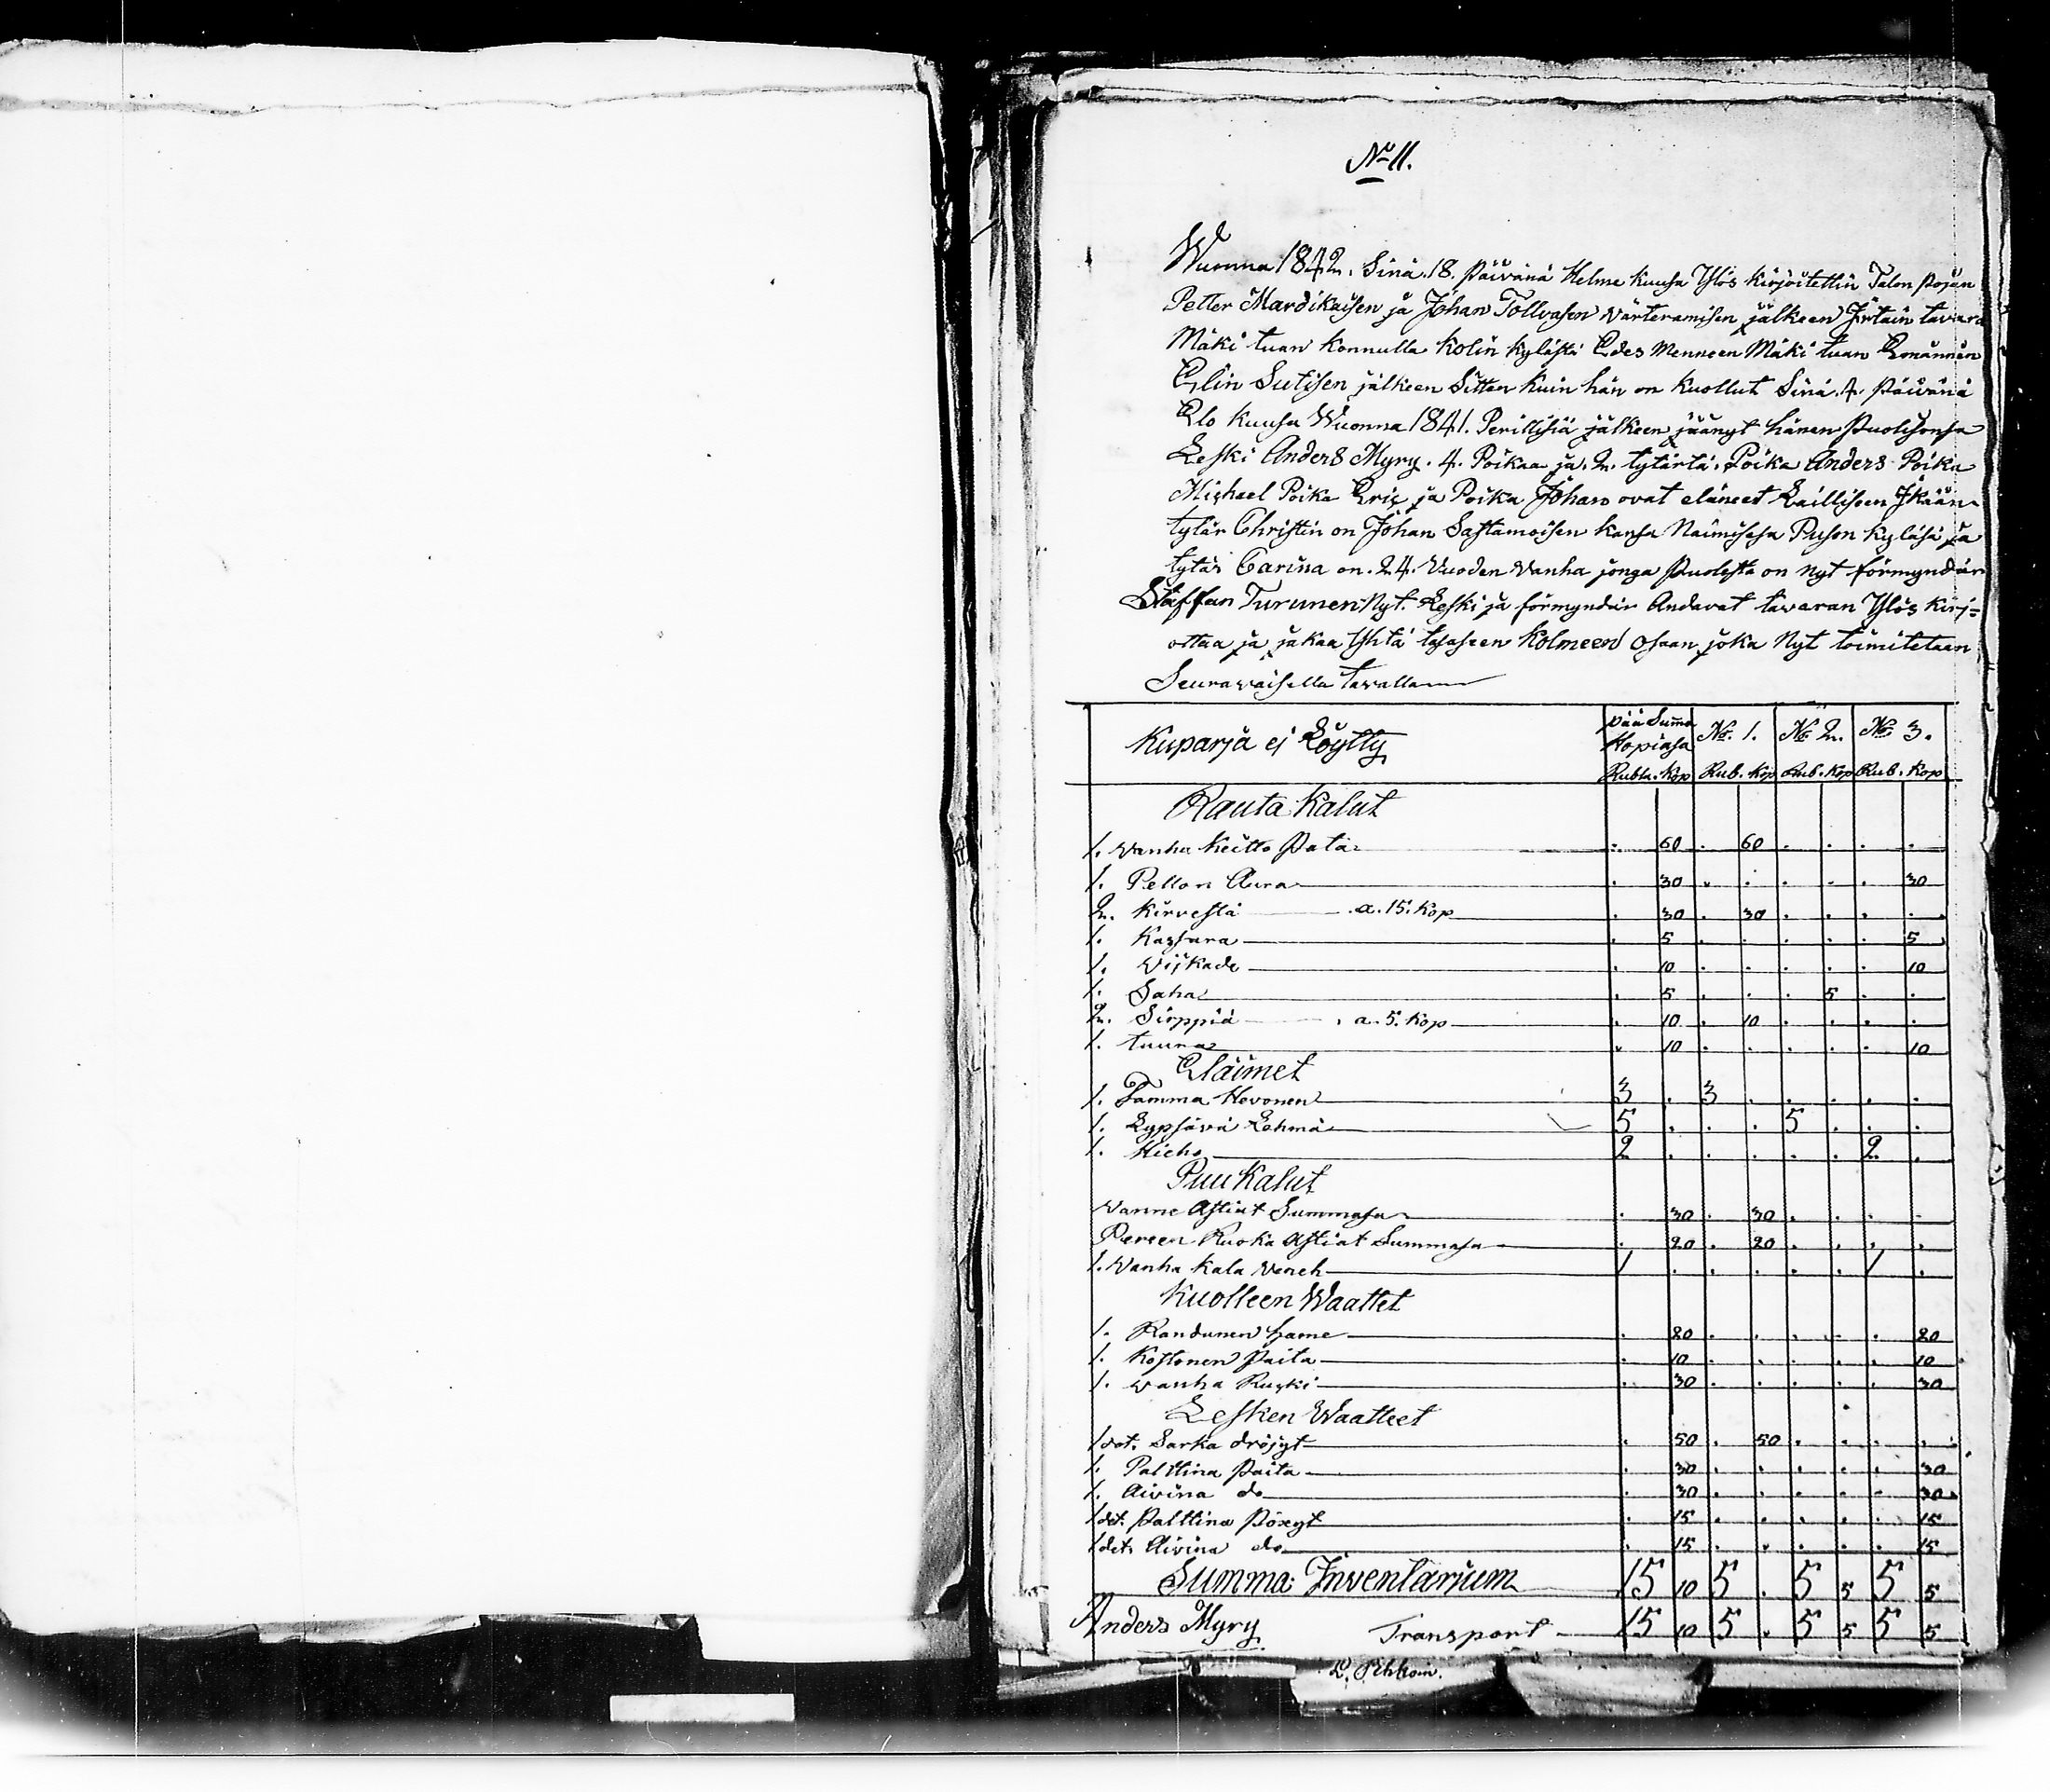 No 11.
Wuonna 1842. Sinä. 18. Päivänä Helme kuusa Ylös kirjoitettin Talon Pojan
Petter Mardikaisen ja Johan Tollvasen värteramisen jälkeen Jrtain tavara
Mäki tuan konnulla Kolin kylästä Edes Menneen Mäki tuan Emännän
Elin Sutisen jälkeen Sitten kuin hän on kuollut Sinä. 4. Päivänä
Elo kuusa Wuonna 1841. Perillisiä jälkeen jäänyt hänen Puolisonsa
Leski Anders Myry. 4. Poikaa ja. 2. tytärtä. Poika Anders Poika
Michael Poika Eric ja Poika Johan ovat eläneet Lailliseen Jkään
tytär Christin on Johan Sastamoisen kansa Naimisesa Puson kyläsä ja
tytär Carina on. 24. Vuoden Vanha jonga Puolesta on nyt förmyndär
Staffan Turunen Nyt. Leski ja förmyndär Andavat tavaran Ylös kirj=
ottaa ja jakaa Yhtä tasaseen Kolmeen Osaan joka Nyt toimitetaan
Seuravaisella tavalla
Kuparja ej Löytty pää Summa Hopiasa No. 1. No 2. No 3.
Rubla. Kop Rub. Kop Rub. Kop Rub. Kop
Rauta Kalut
1. Vanha Keitto Pata . 60 . 60 . . . .
1. Pellon Aura . 30 . . . . . 30
2. Kirvestä a. 15. Kop . 30 . 30 . . . .
1. Kassara . 5 . . . . . 5
1. Vijkade . 10 . . . . . 10
1. Saha . 5 . . . 5 . .
2. Sirppiä a. 5. Kop . 10 . 10 . . . .
1. tuura . 10 . . . . . 10
Eläimet
1. Tamma Hevonen 3 . 3 . . . . .
1. Lypsävä Lehmä 5 . . . 5 . . .
1. Hieho 2 . . . . . 2 .
Puu Kalut
Vanne Astiat Summasa . 30 . 30 . . . .
Pereen Ruoka Astiat Summasa . 20 . 20 . . . .
1. Vanha Kala Veneh 1 . . . . . 1 .
Kuolleen Waattet
1. Randunen hame . 20 . . . . . 20
1. Kostonen Paita . 10 . . . . . 10
1. vanha Ryski . 30 . . . . . 30
Lesken Waatteet
1 dot. Sarka dröjyt . 50 . 50 . . . .
1. Palttina Paita . 30 . . . . . 30
1. Aivina do . 30 . . . . . 30
1 dot. Palttina Pöxyt . 15 . . . . . 15
1 dot. Aivina do . 15 . . . . . 15
Summa Jnventarium 15 10 5 . 5 5 5 5
Anders Myry Transport 15 10 5 . 5 5 5 5